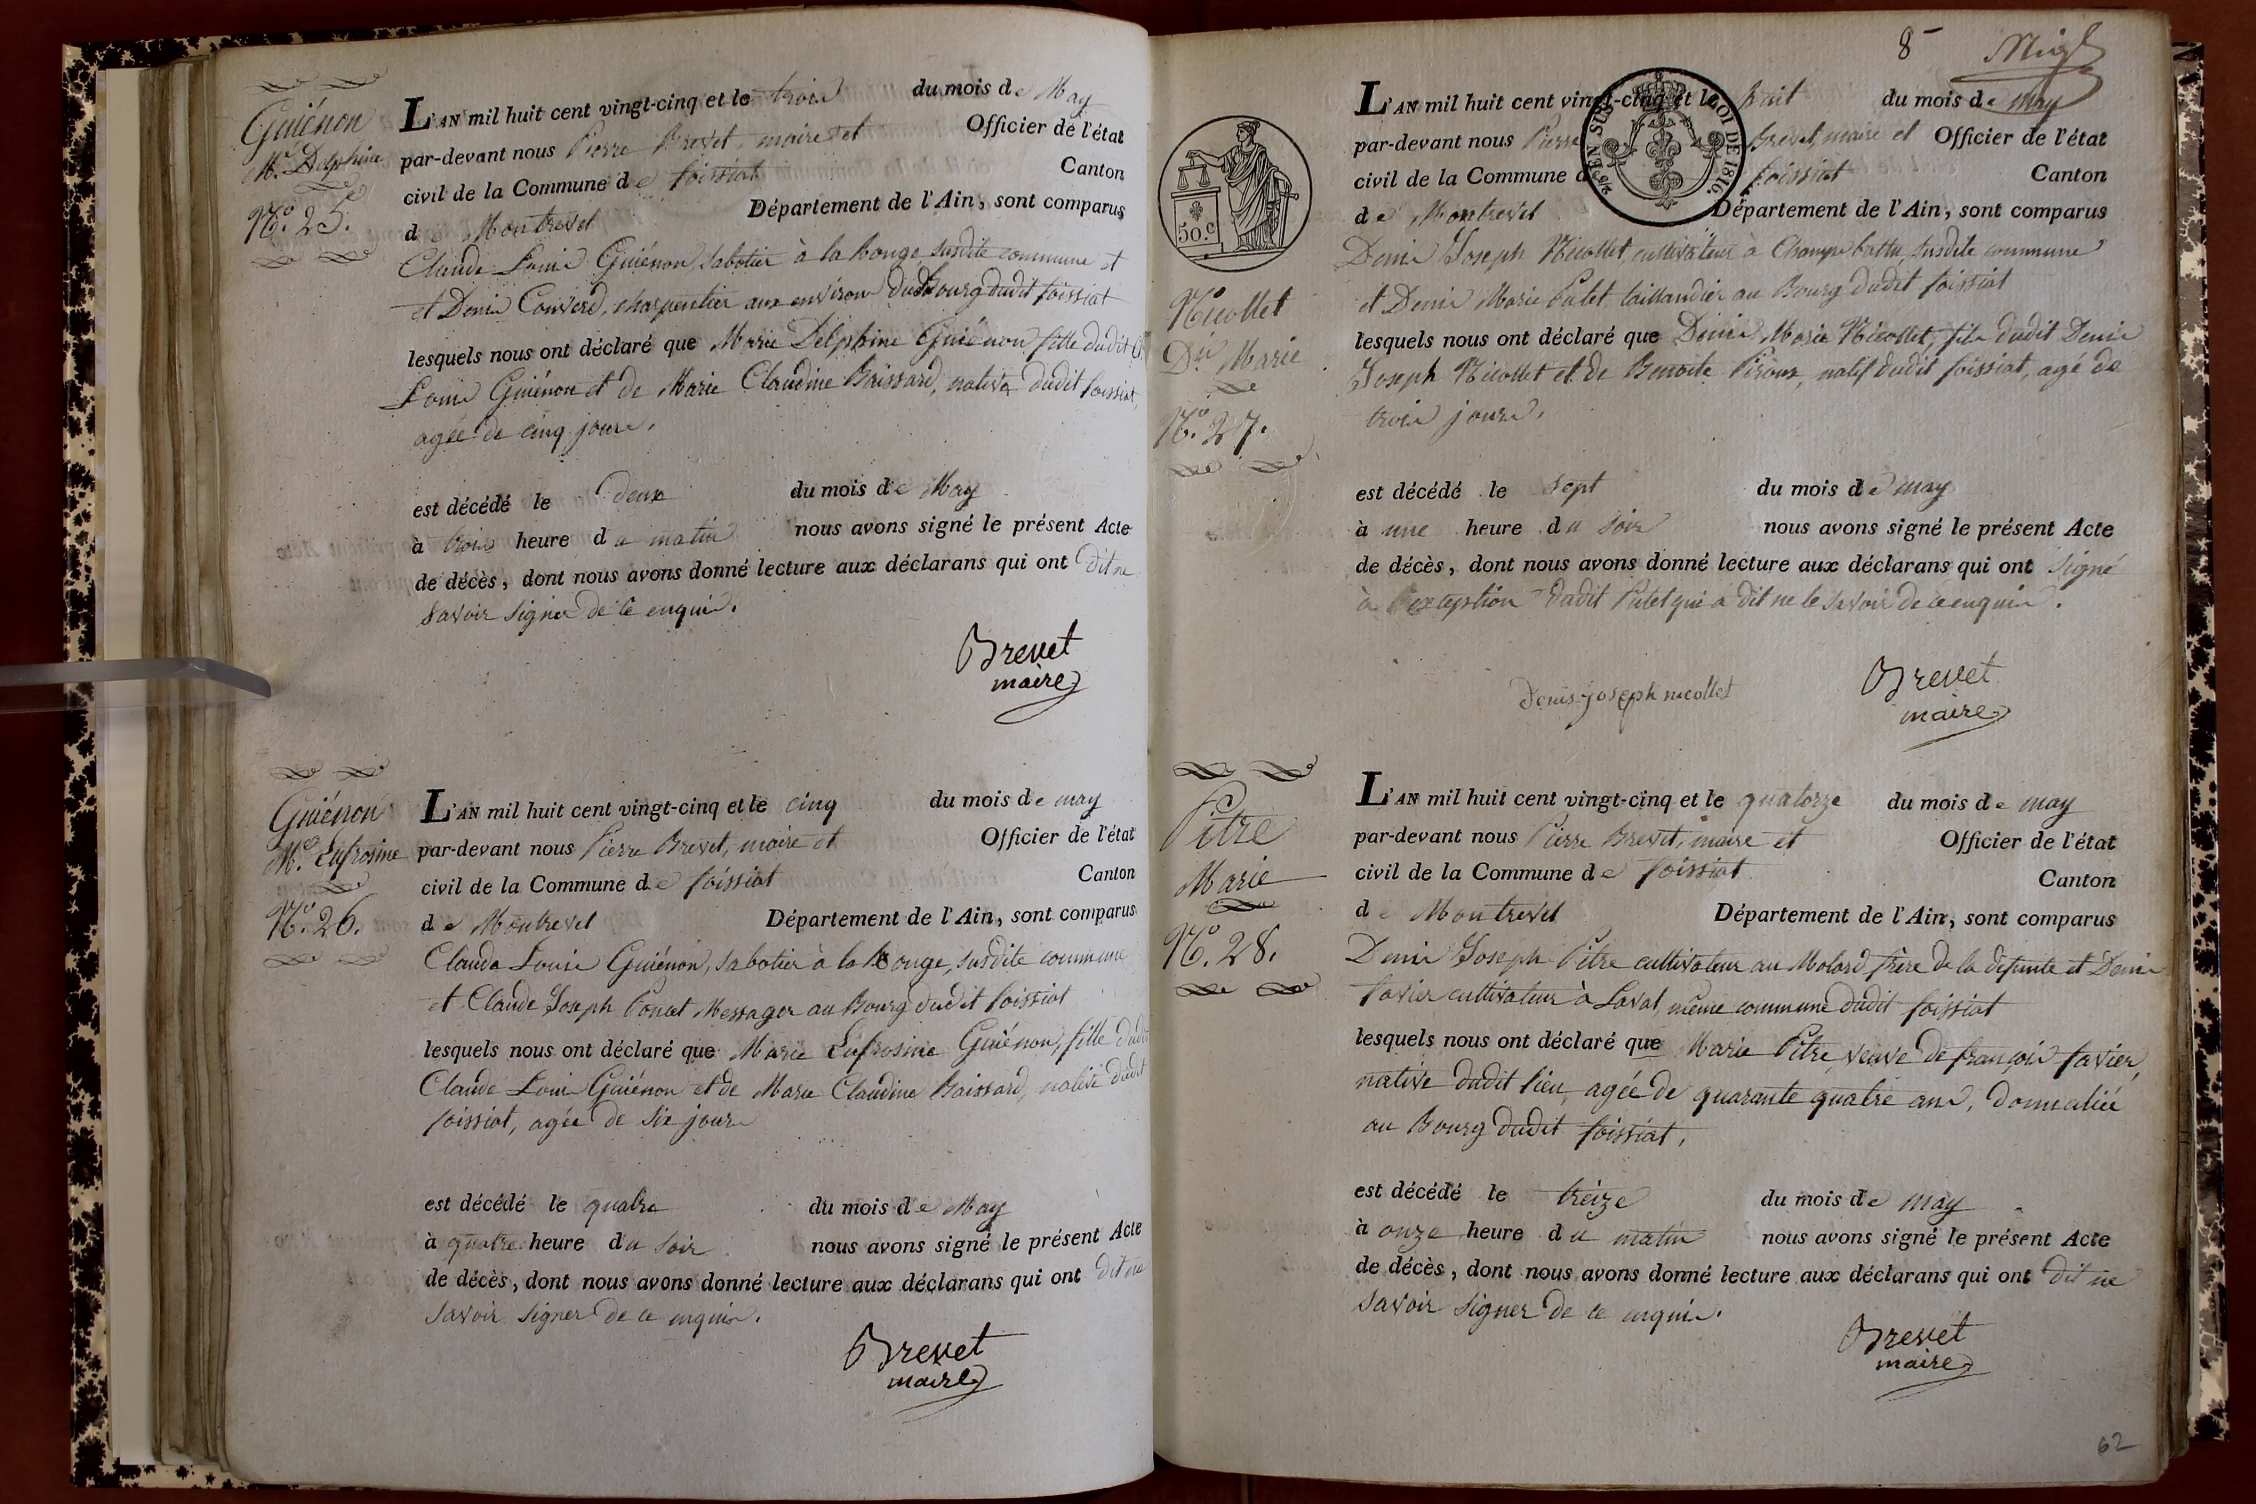 Guiénon
Mie. Delphine
No. 25.
L'AN mil huit cent vingt-cinq et le trois du mois de May
par-devant nous Pierre Brevet, maire et Officier de l'état
civil de la Commune de foissiat Canton
de Montrevel Département de l'Ain, sont comparus
Claude Louis Guiénon, sabotier à la Rouge, susdite commune et
et Denis Convers, charpentier aux environs du Bourg dudit foissiat
lesquels nous ont déclaré que Marie Delphine Guiénon fille dudit
Louis Guiénon et de Marie Claudine Boissard, native dudit foissiat,
agée de cinq jours.
est décédé le deux du mois de May
à trois heure du matin nous avons signé le présent Acte
de décès, dont nous avons donné lecture aux déclarans qui ont dit ne
savoir signer de ce enquis.
Brevet
maire
Guiénon
Mie. Eufrosine
No. 26.
L'AN mil huit cent vingt-cinq et le cinq du mois de may
par-devant nous Pierre Brevet, maire et Officier de l'état
civil de la Commune de foissiat Canton
de Montrevel Département de l'Ain, sont comparus
Claude Louis Guiénon, sabotier à la Rouge, susdite commune
et Claude Joseph Poncet Messager au Bourg dudit foissiat
lesquels nous ont déclaré que Marie Eufrosine Guiénon, fille dudit
Claude Louis Guiénon et de Marie Claudine Boissard, native dudit
foissiat, agée de six jours
est décédé le quatre du mois de May
à quatre heure du soir nous avons signé le présent Acte
de décès, dont nous avons donné lecture aux déclarans qui ont dit ne
savoir signer de ce enquis.
Brevet
maire
8
50.c
EN SUS LOI DE 1816.
Nicollet
Dis. Marie
No. 27.
L'AN mil huit cent vingt-cinq et le huit du mois de may
par-devant nous Pierre Brevet, maire et Officier de l'état
civil de la Commune d foissiat Canton
de Montrevel Département de l'Ain, sont comparus
Denis Joseph Nicollet, cultivateur à Champ battu, susdite commune
et Denis Marie Putet, taillandier au Bourg dudit foissiat
lesquels nous ont déclaré que Denis Marie Nicollet, fils dudit Denis
Joseph Nicollet et de Benoite Piroux, natif dudit foissiat, agé de
trois jours.
est décédé le sept du mois de may
à une heure du soir nous avons signé le présent Acte
de décès, dont nous avons donné lecture aux déclarans qui ont signé
à l'exception dudit Putet qui a dit ne le savoir de ce enquis.
Denis joseph nicollet
Brevet
maire
Pitre
Marie
No. 28.
L'AN mil huit cent vingt-cinq et le quatorze du mois de may
par-devant nous Pierre Brevet, maire et Officier de l'état
civil de la Commune de foissiat Canton
de Montrevel Département de l'Ain, sont comparus
Denis Joseph Pitre cultivateur au Molard frère de la defunte et Denis
favier cultivateur à Laval, même commune dudit foissiat
lesquels nous ont déclaré que Marie Pitre, veuve de françois favier,
native dudit lieu, agée de quarante quatre ans, domiciliée
au Bourg dudit foissiat.
est décédé le treize du mois de may
à onze heure du matin nous avons signé le présent Acte
de décès, dont nous avons donné lecture aux déclarans qui ont dit ne
savoir signer de ce enquis.
Brevet
maire
62